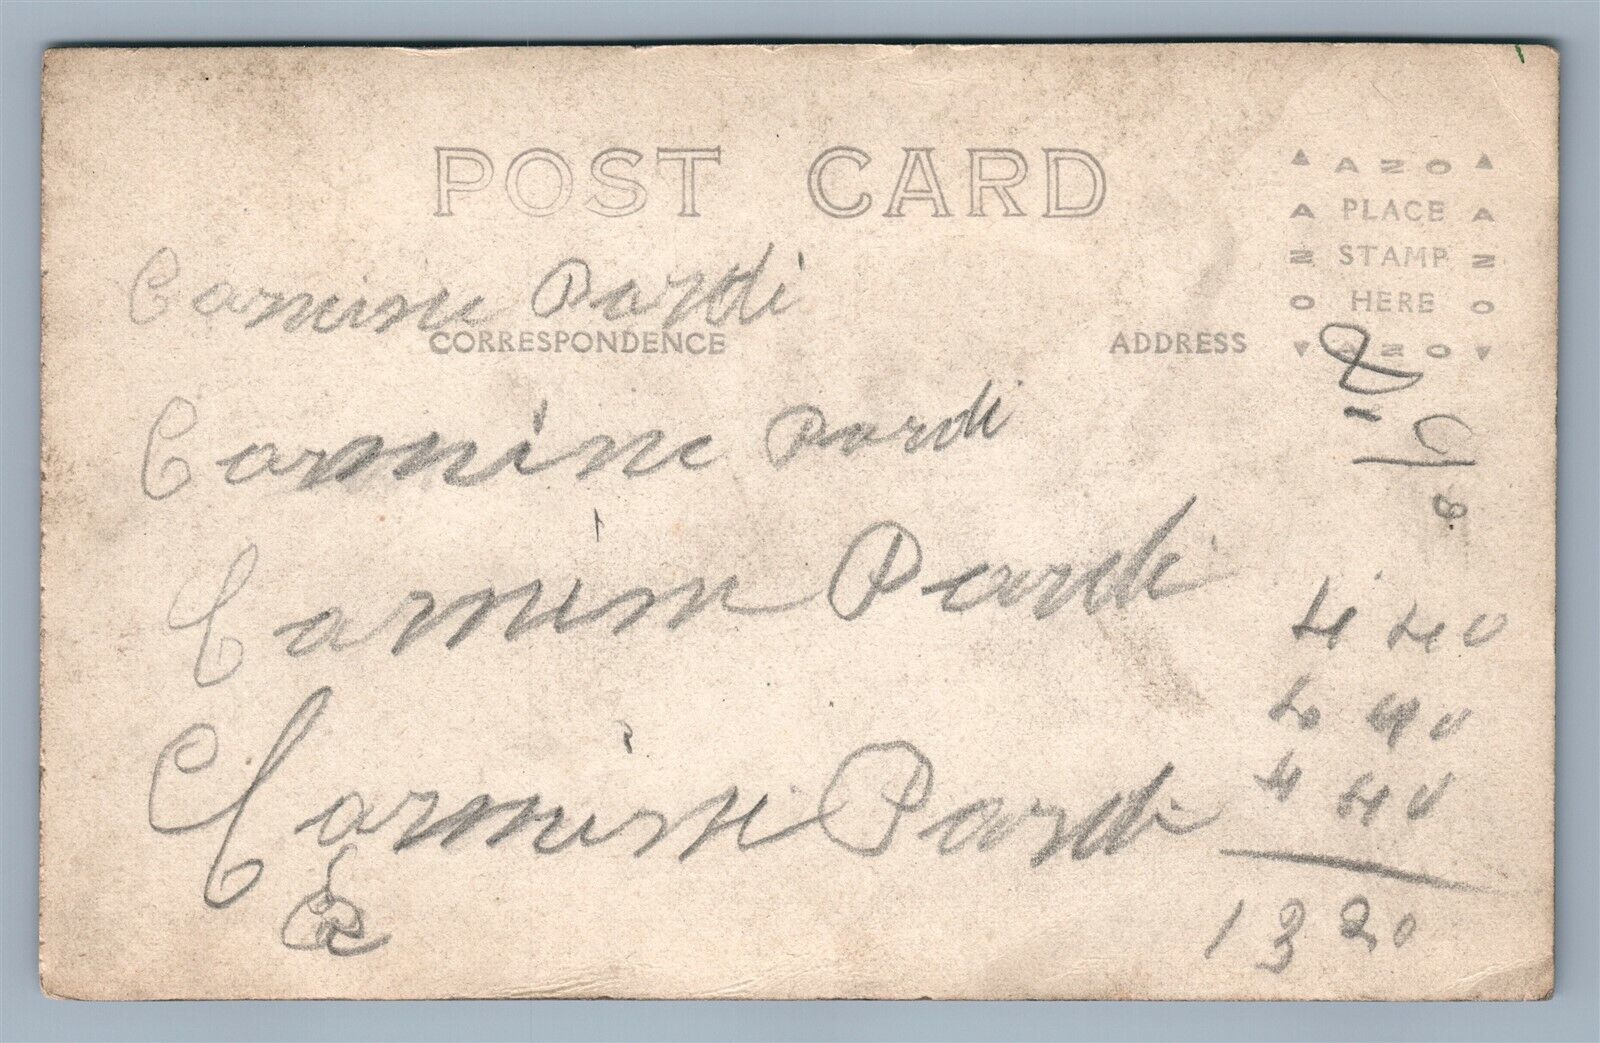 POST CARD
AZO
A PLACE A
Z STAMP Z
O HERE O
AZO
Carmine Pardi
CORRESPONDENCE
ADDRESS
Carmine Pardi
Carmin Pardi
Carmine Pardi
440
440
440
1320